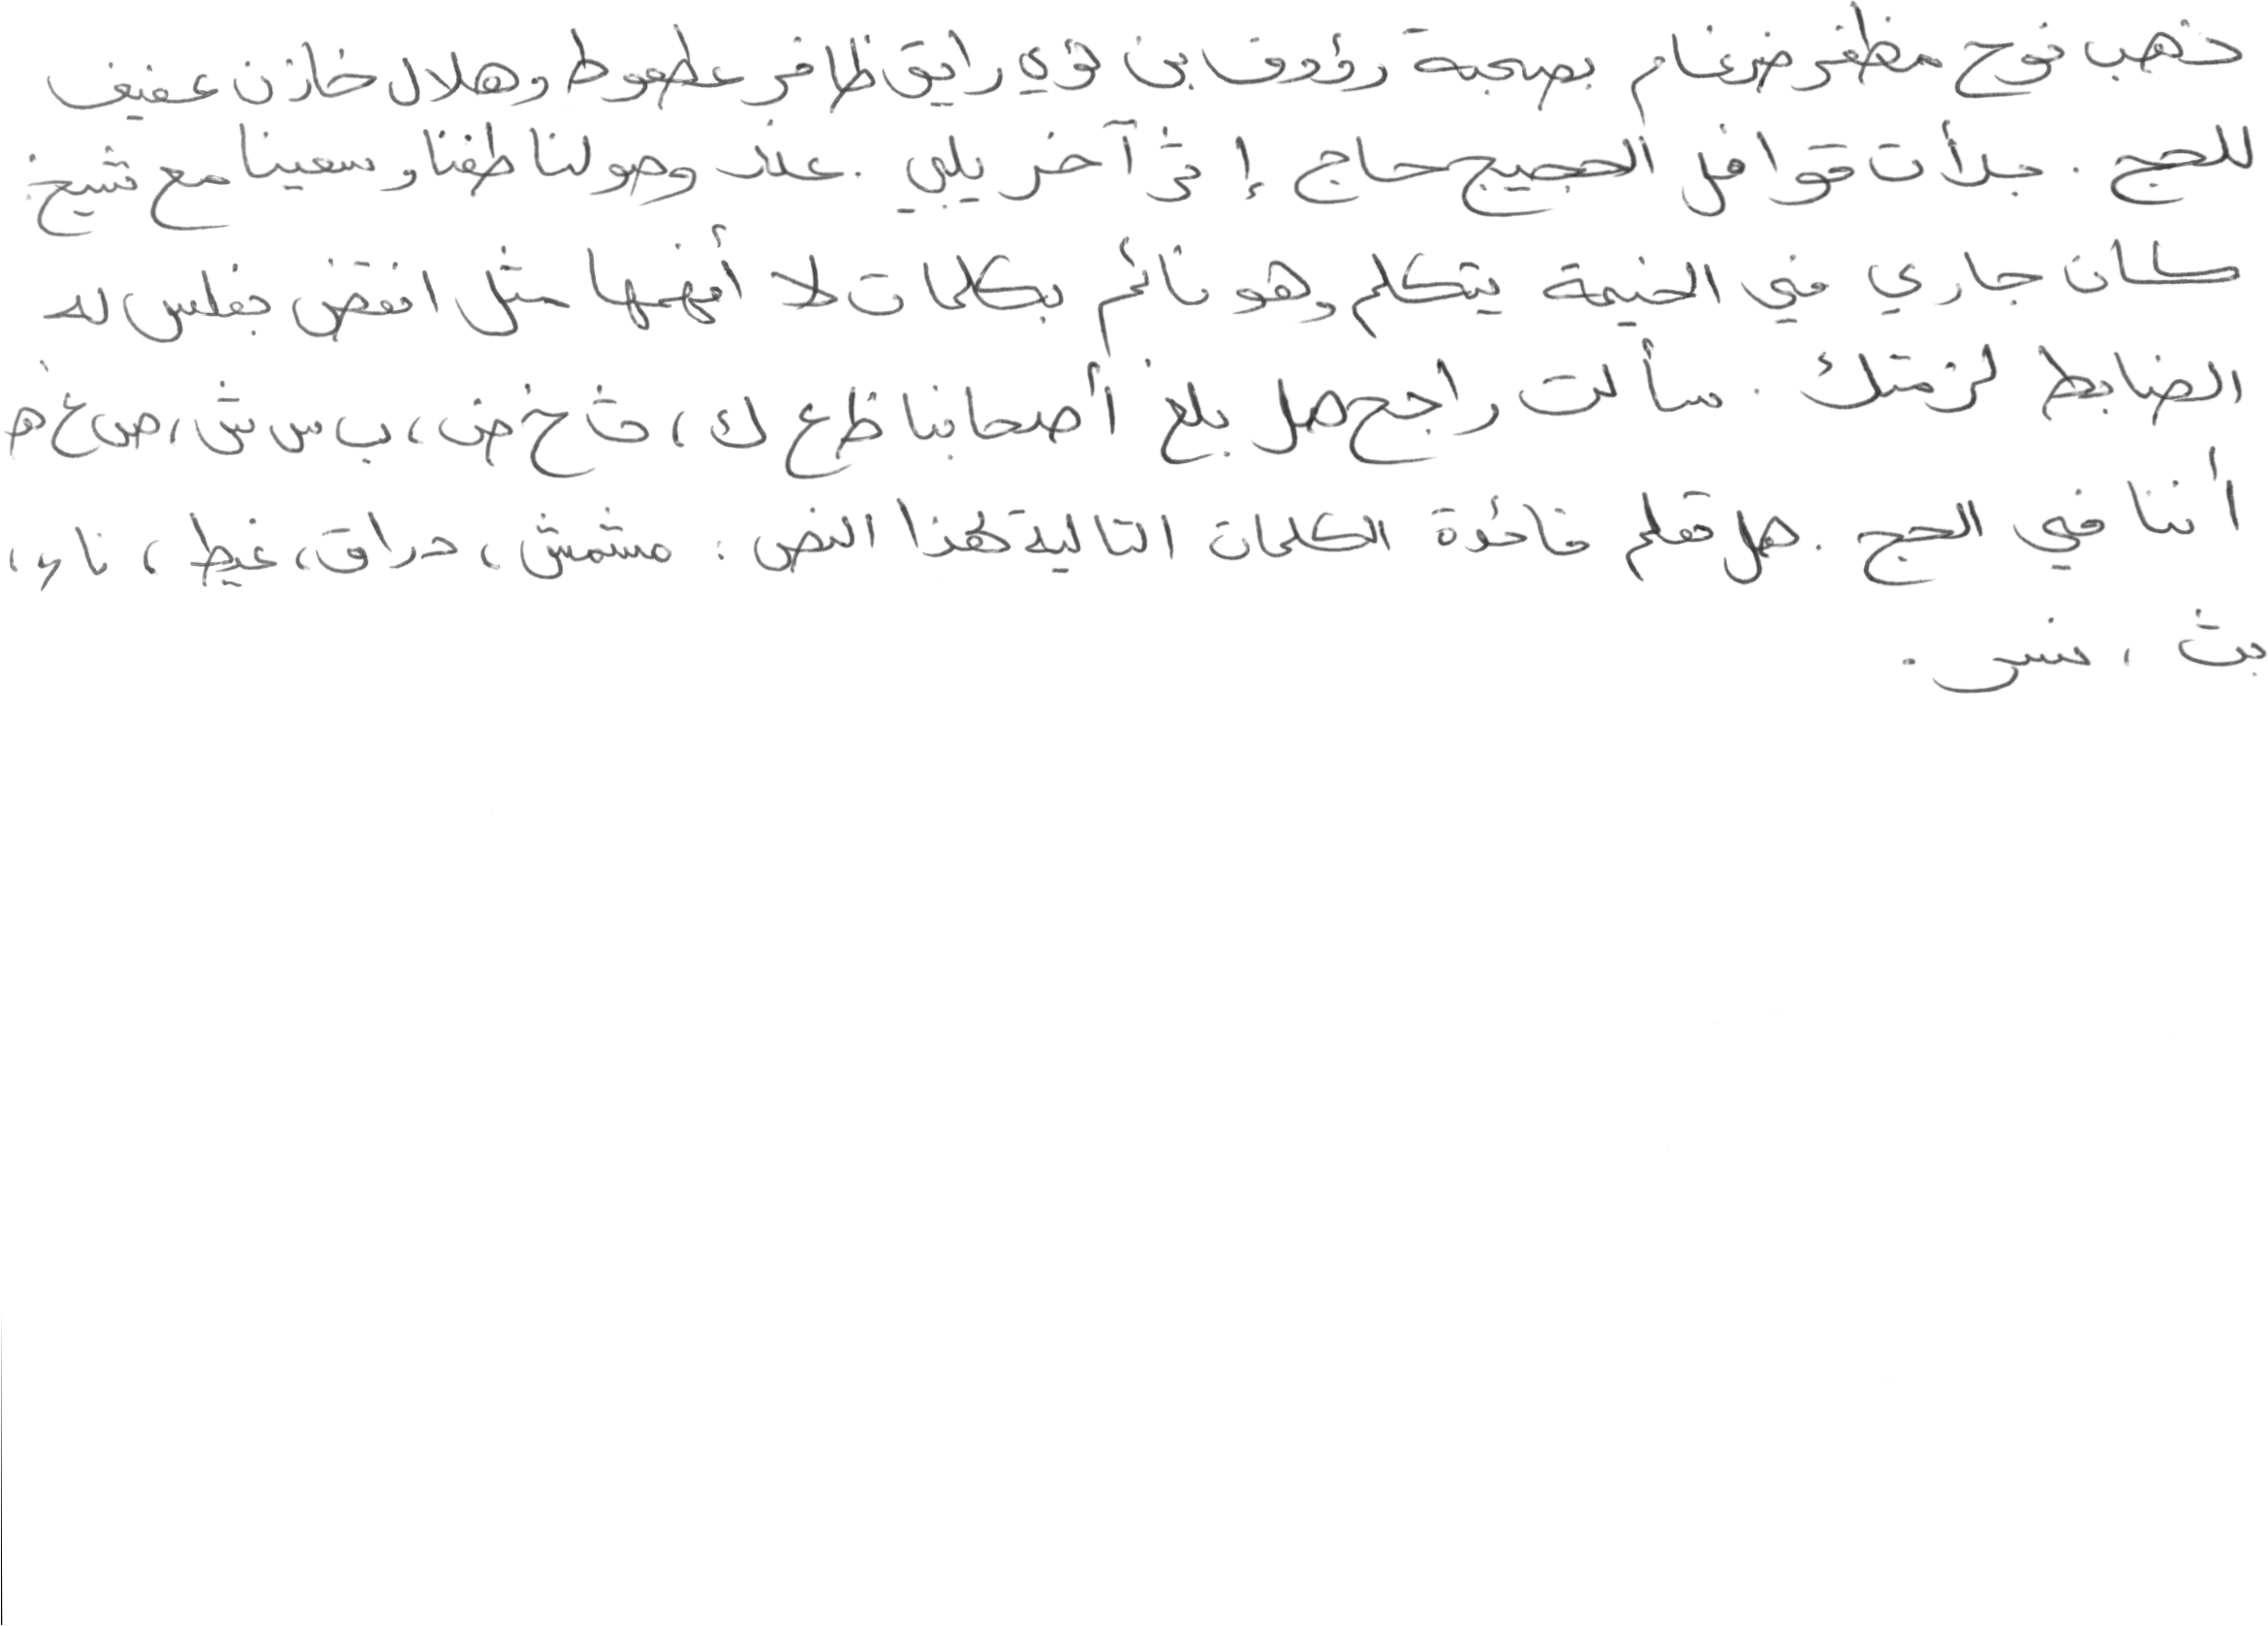 ذهب نوح مظفر ضرغام بصحبة رؤوف بن لؤي رايق ظافر عطعوط وهلال خازن عفيف
للحج . بدأت قوافل الحجيج حاج إثر آخر يلبي . عند وصولنا طفنا وسعينا مع شيخ
كان جاري في الخيمة يتكلم وهو نائم بكلمات لا أفهمها مثل انقض بغلس له
الضابط لزمتك . سألت راجح هل بلغ أصحابنا ظ ع ك ، ث خ ض ، ب س ش ، ص غ م
أننا في الحج . هل تعلم فائدة الكلمات التالية لهذا النص : مشمش ، دراق ، غيط ، ناء ،
بث ، نسر .